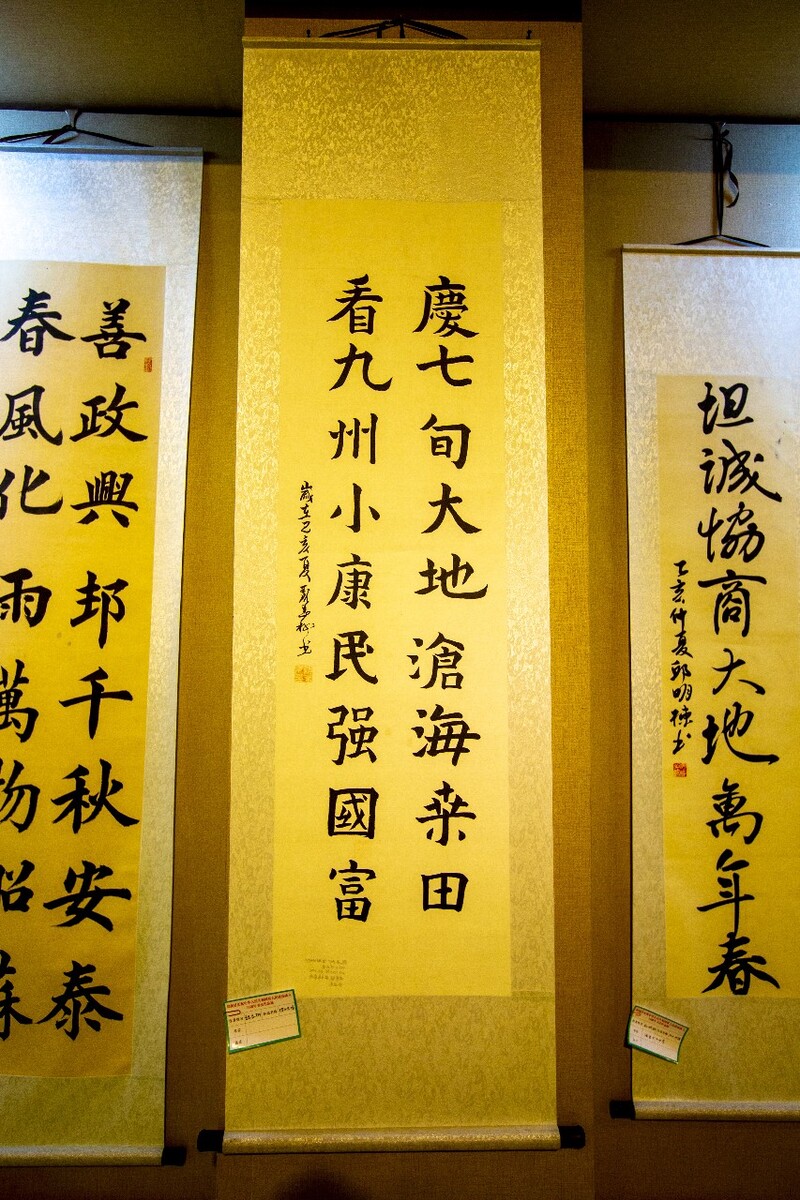 坦誠協商大地萬年春
己亥仲夏邱明
慶七旬大地滄海桒田
看九州小康民强國富
歲在己亥夏
善政興邦千秋安泰
春風化雨萬物昭蘇